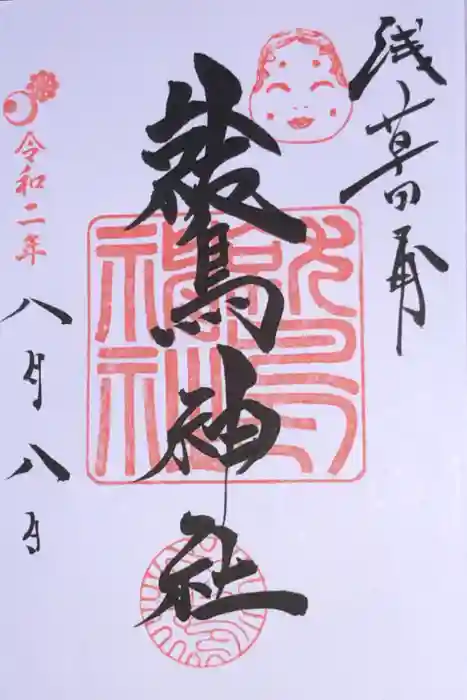 浅草田甫
鷲神社
令和二年
八月八日
鷲神社